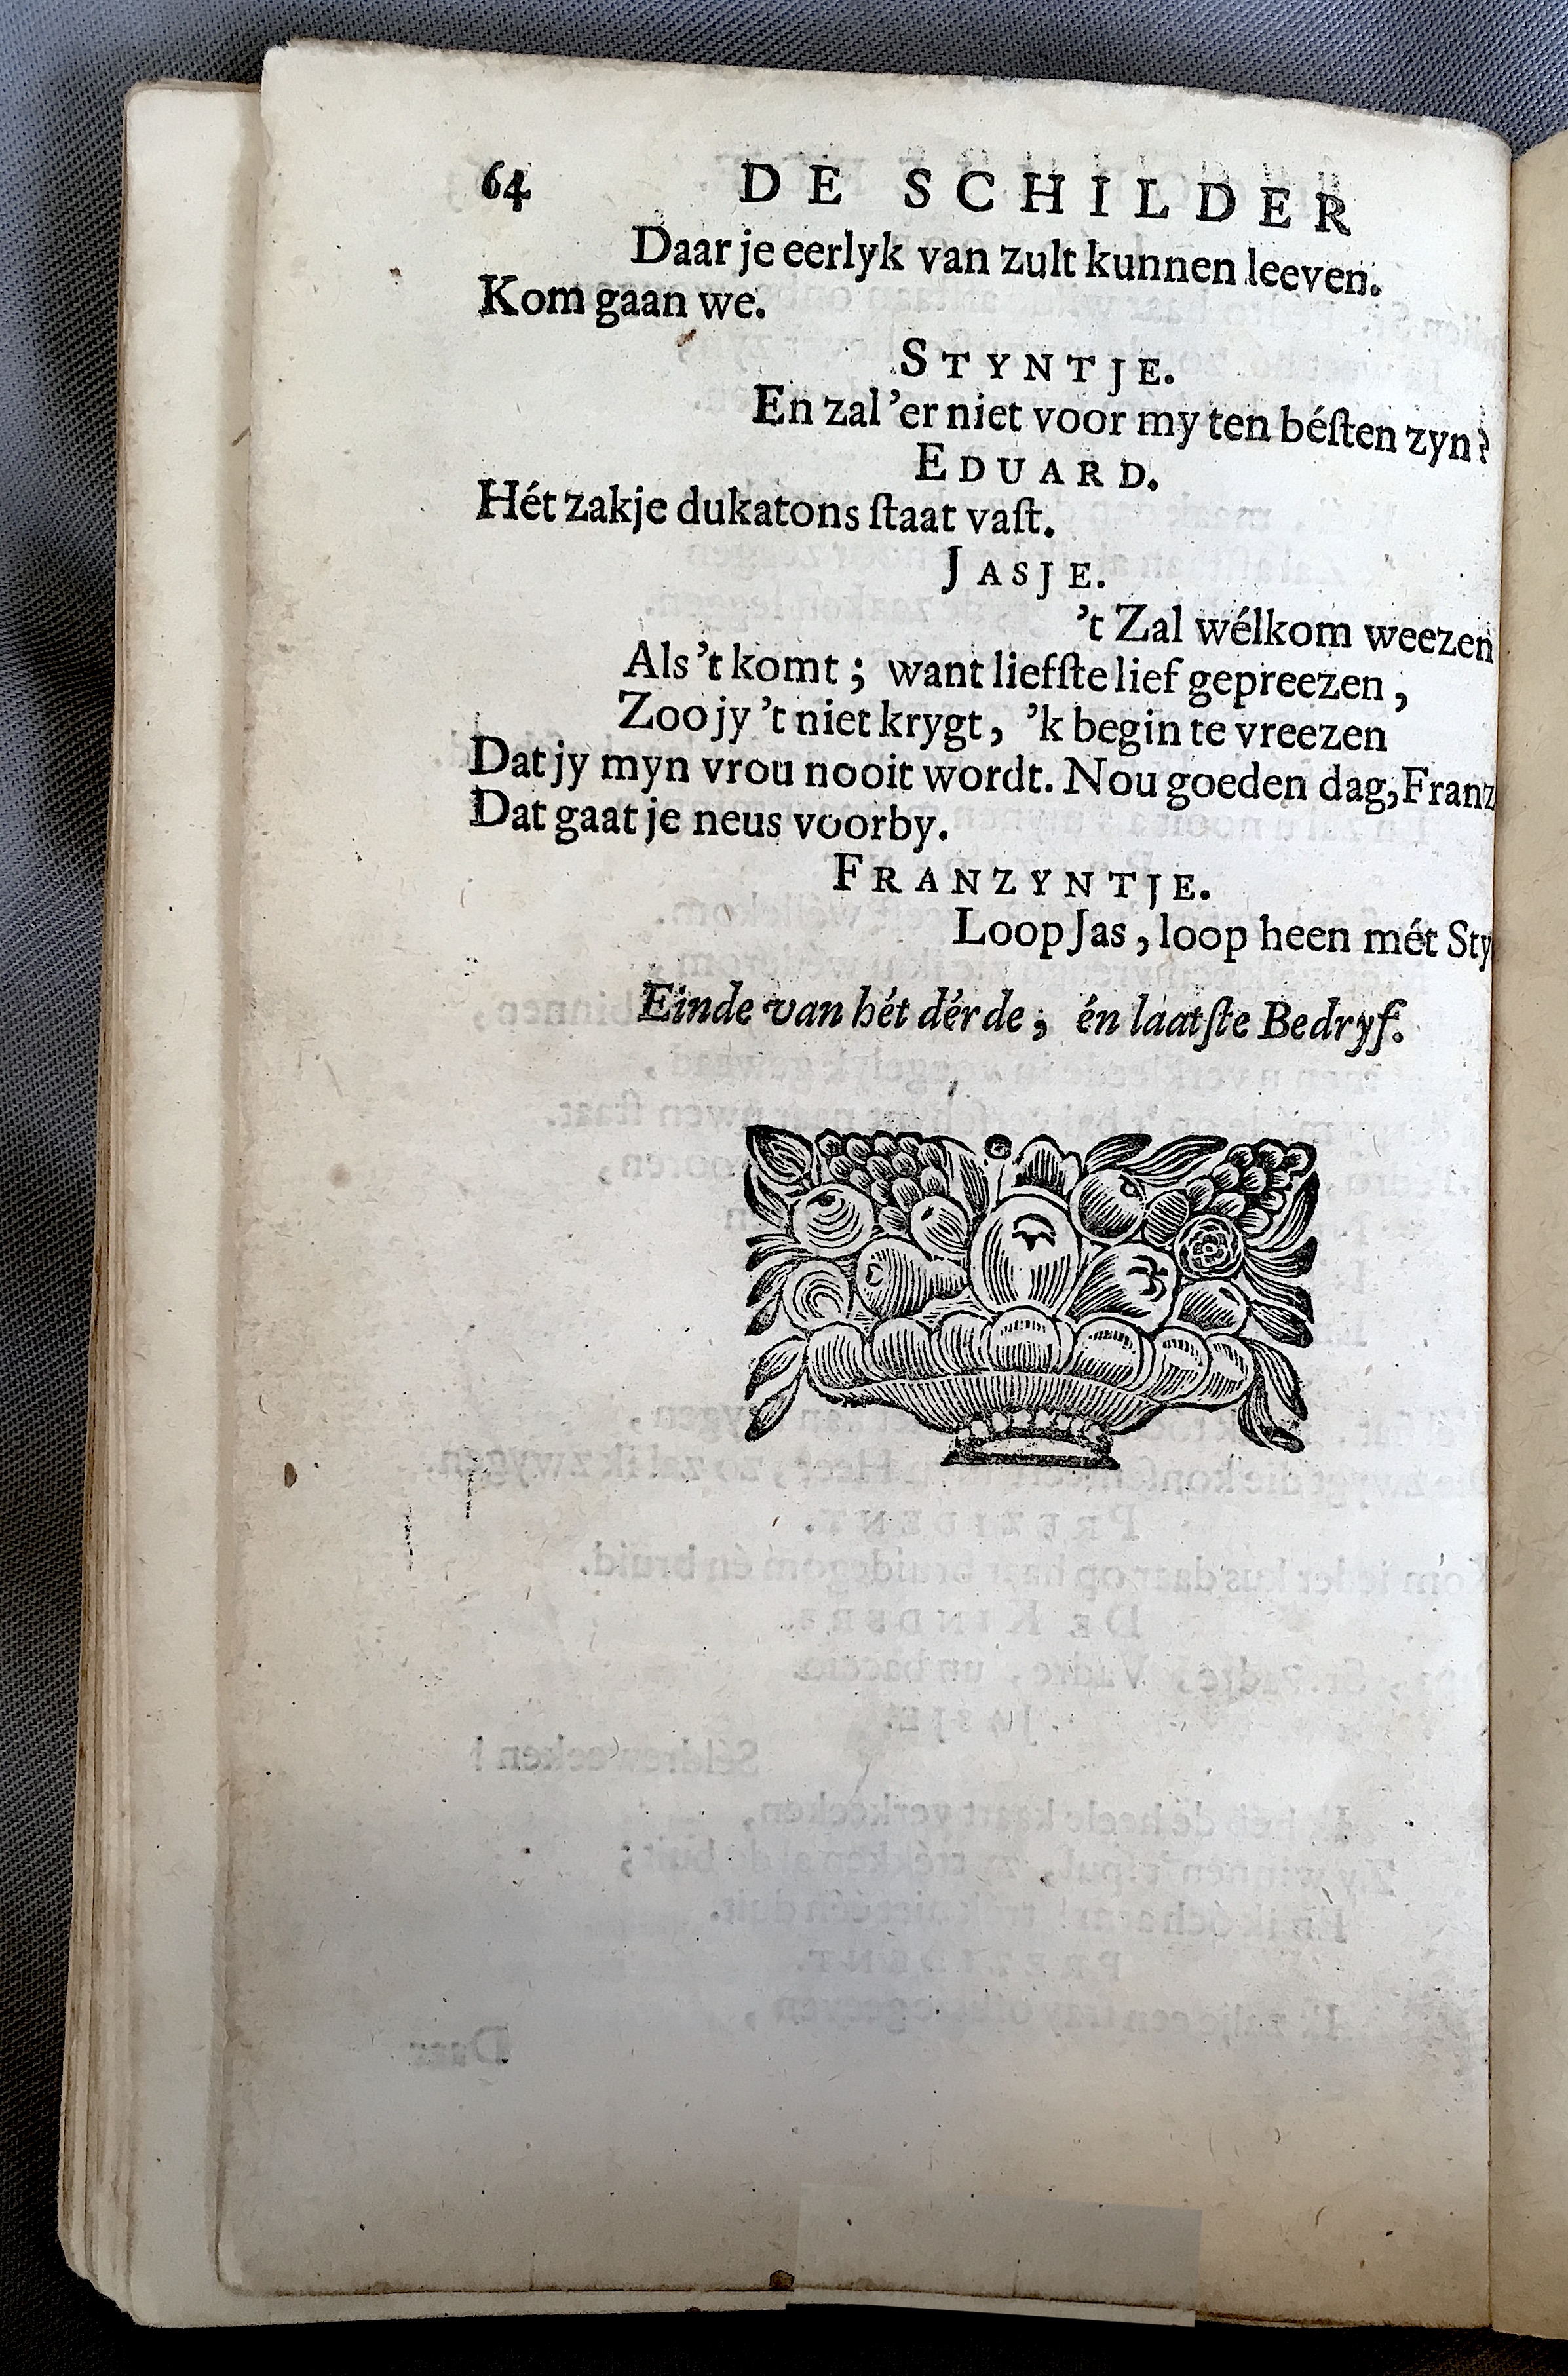 64 DE SCHILDER
Daar je eerlyk van zult kunnen leeven.
Kom gaan we.
STYNTJE.
En zal 'er niet voor my ten béſten zyn?
EDUARD.
Hét zakje dukatons ſtaat vaſt.
JASJE.
't Zal wélkom weezen
Als 't komt; want liefſte lief gepreezen,
Zoo jy 't niet krygt, 'k begin te vreezen
Dat jy myn vrou nooit wordt. Nou goeden dag, Franz
Dat gaat je neus voorby.
FRANZYNTJE.
Loop Jas, loop heen mét Sty
Einde van hét dérde, én laatſte Bedryf.